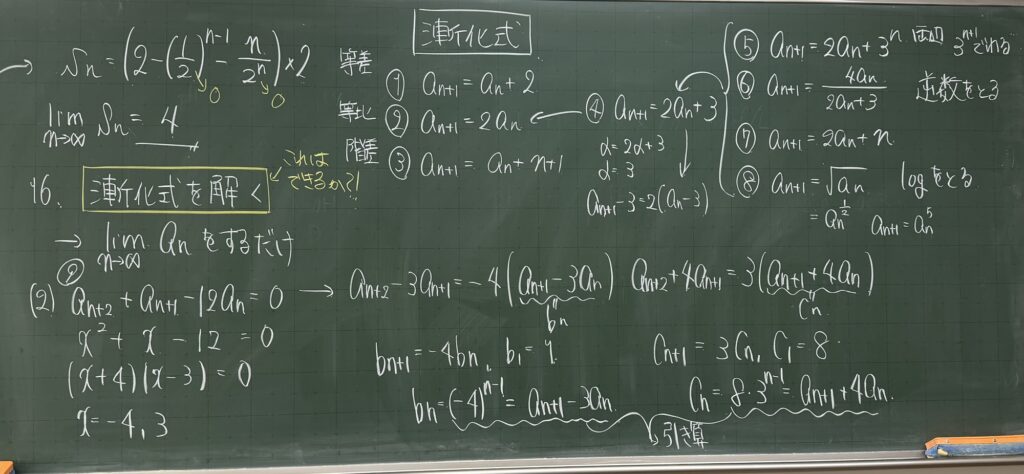 Sn = (2 - (1/2)^{n-1} - n/2^n) × 2
0
0
lim n→∞ Sn = 4
16. 漸化式を解く
これは
できるか?!
→ lim n→∞ an をするだけ
(2) an+2 + an+1 - 12an = 0
x² + x - 12 = 0
(x+4)(x-3) = 0
x = -4, 3
漸化式
等差 ① an+1 = an + 2
等比 ② an+1 = 2an
階差 ③ an+1 = an + n+1
④ an+1 = 2an + 3
α = 2α + 3
α = 3
an+1 - 3 = 2(an - 3)
⑤ an+1 = 2an + 3^n 両辺 3^{n+1}でわる
⑥ an+1 = 4an/(2an+3) 逆数をとる
⑦ an+1 = 2an + n
⑧ an+1 = √an logをとる
= an^{1/2} an+1 = an^5
→ an+2 - 3an+1 = -4(an+1 - 3an)
bn
bn+1 = -4bn, b1 = 1
bn = (-4)^{n-1} = an+1 - 3an
an+2 + 4an+1 = 3(an+1 + 4an)
Cn
Cn+1 = 3Cn, C1 = 8
Cn = 8·3^{n-1} = an+1 + 4an
引き算